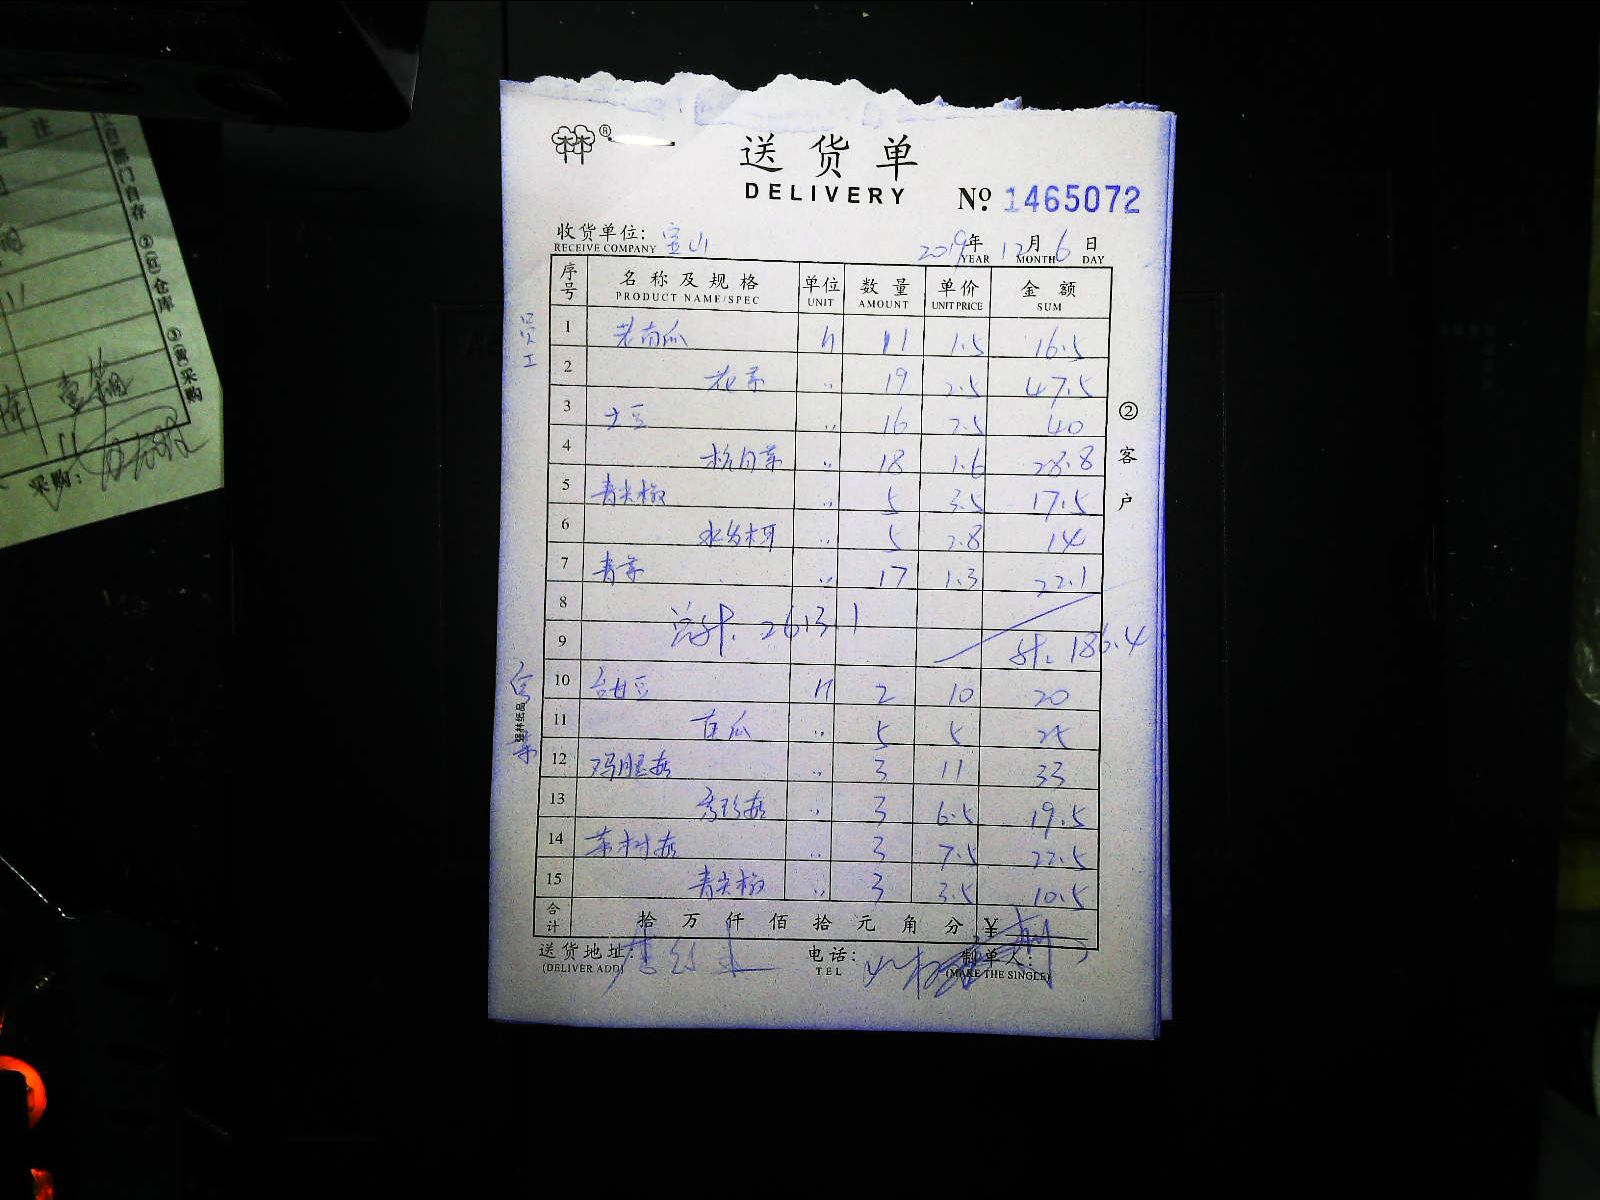 送货单
DELIVERY
№ 1465072
收货单位: 宝山 2019年 12月 6日
RECEIVE COMPANY YEAR MONTH DAY
序号 名称及规格 单位 数量 单价 金额
PRODUCT NAME/SPEC UNIT AMOUNT UNIT PRICE SUM
员工
1 老南瓜 斤 11 1.5 16.5
2 花菜 〃 19 2.5 47.5
3 土豆 〃 16 2.5 40
4 杭白菜 〃 18 1.6 28.8
5 青尖椒 〃 5 3.5 17.5
6 水发木耳 〃 5 2.8 14
7 青菜 〃 17 1.3 22.1
8 总计. 2613.1
9 计. 186.4
客菜
10 甜豆 斤 2 10 20
11 苦瓜 〃 5 5 25
12 鸡腿菇 〃 3 11 33
13 秀珍菇 〃 3 6.5 19.5
14 茶树菇 〃 3 7.5 22.5
15 青尖椒 〃 3 3.5 10.5
合计 拾 万 仟 佰 拾 元 角 分 ¥
送货地址: 电话: 制单人:
(DELIVER ADD) TEL (MAKE THE SINGLE)
② 客户
强林纸品
注
部门自存 ②(红)仓库 ③(黄)采购
采购: